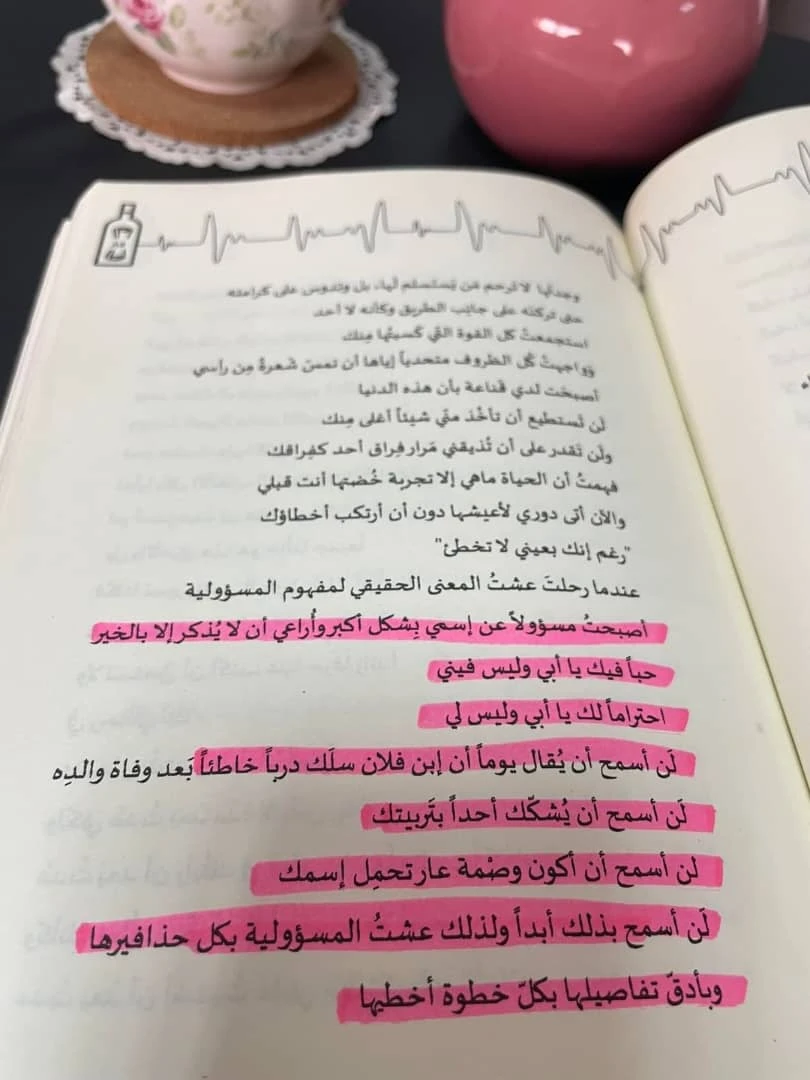 وجدتها لا ترحم مَن يَستسلم لها، بل وتدوس على كرامته
حتى تركته على جانِب الطريق وكأنه لا أحد
استجمعتُ كل القوة التي كَسبتُها مِنك
وَواجهتُ كُل الظروف متحدياً إياها أن تمسّ شَعرةً مِن رأسي
أصبحَت لدي قَناعة بأن هذه الدنيا
لَن تَستطيع أن تأخُذ منّي شيئاً أغلى مِنك
ولَن تَقدر على أن تُذيقني مَرار فِراق أحد كفِراقك
فهِمتُ أن الحياة ماهي إلا تجربة خُضتها أنت قبلي
والآن أتى دوري لأعيشها دون أن أرتكب أخطاؤك
"رغم إنك بعيني لا تخطئ"
عندما رحلتَ عشتُ المعنى الحقيقي لمفهوم المسؤولية
أصبحتُ مسؤولاً عن إسمي بِشكل أكبر وأُراعي أن لا يُذكر إلا بالخير
حباً فيك يا أبي وليس فيني
احتراماً لك يا أبي وليس لي
لَن أسمح أن يُقال يوماً أن إبن فلان سلَك درباً خاطئاً بَعد وفاة والدِه
لَن أسمح أن يُشكّك أحداً بتَربيتك
لن أسمح أن أكون وصْمة عار تحمِل إسمك
لَن أسمح بذلك أبداً ولذلك عشتُ المسؤولية بكل حذافيرها
وبأدقّ تفاصيلها بكلّ خطوة أخطيها